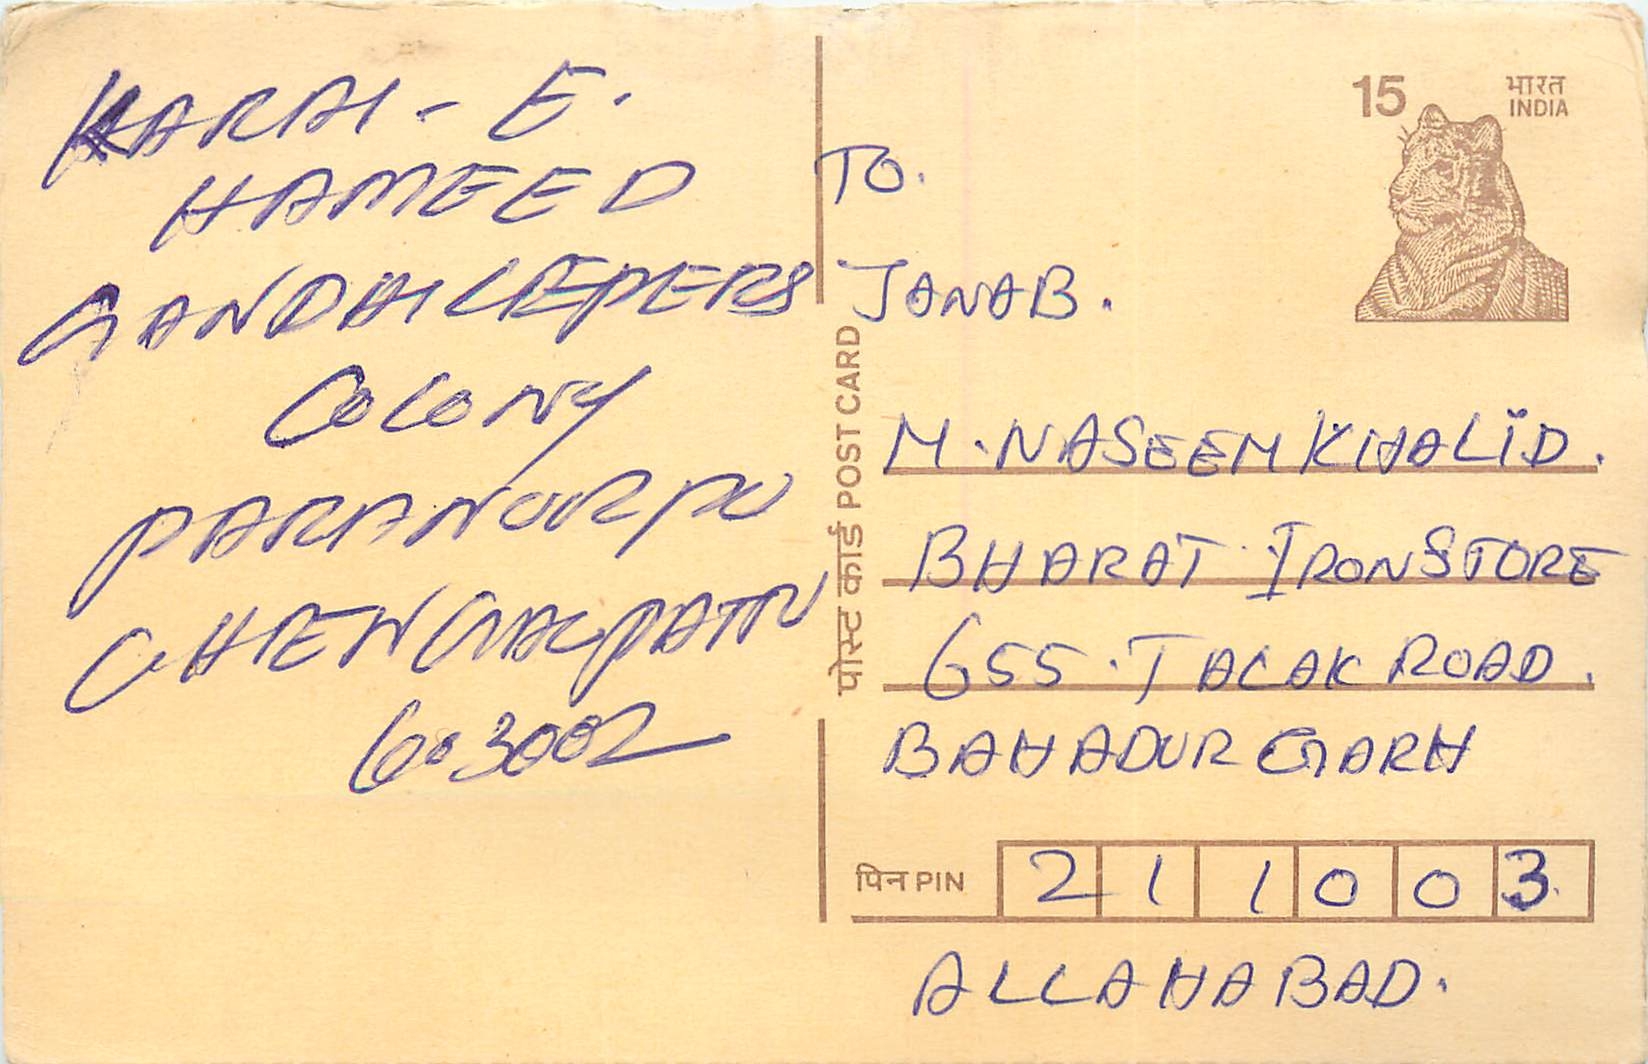 KARAI - E.
HAMEED
GANDHI LEPERS
COLONY
PARANUR PO
CHENGALPATTU
603002
15 भारत
INDIA
TO.
JANAB.
पोस्ट कार्ड POST CARD
M. NASEEM KHALID.
BHARAT IRON STORE
655. TALAK ROAD.
BAHADUR GARH
पिन PIN 211003
ALLAHABAD.